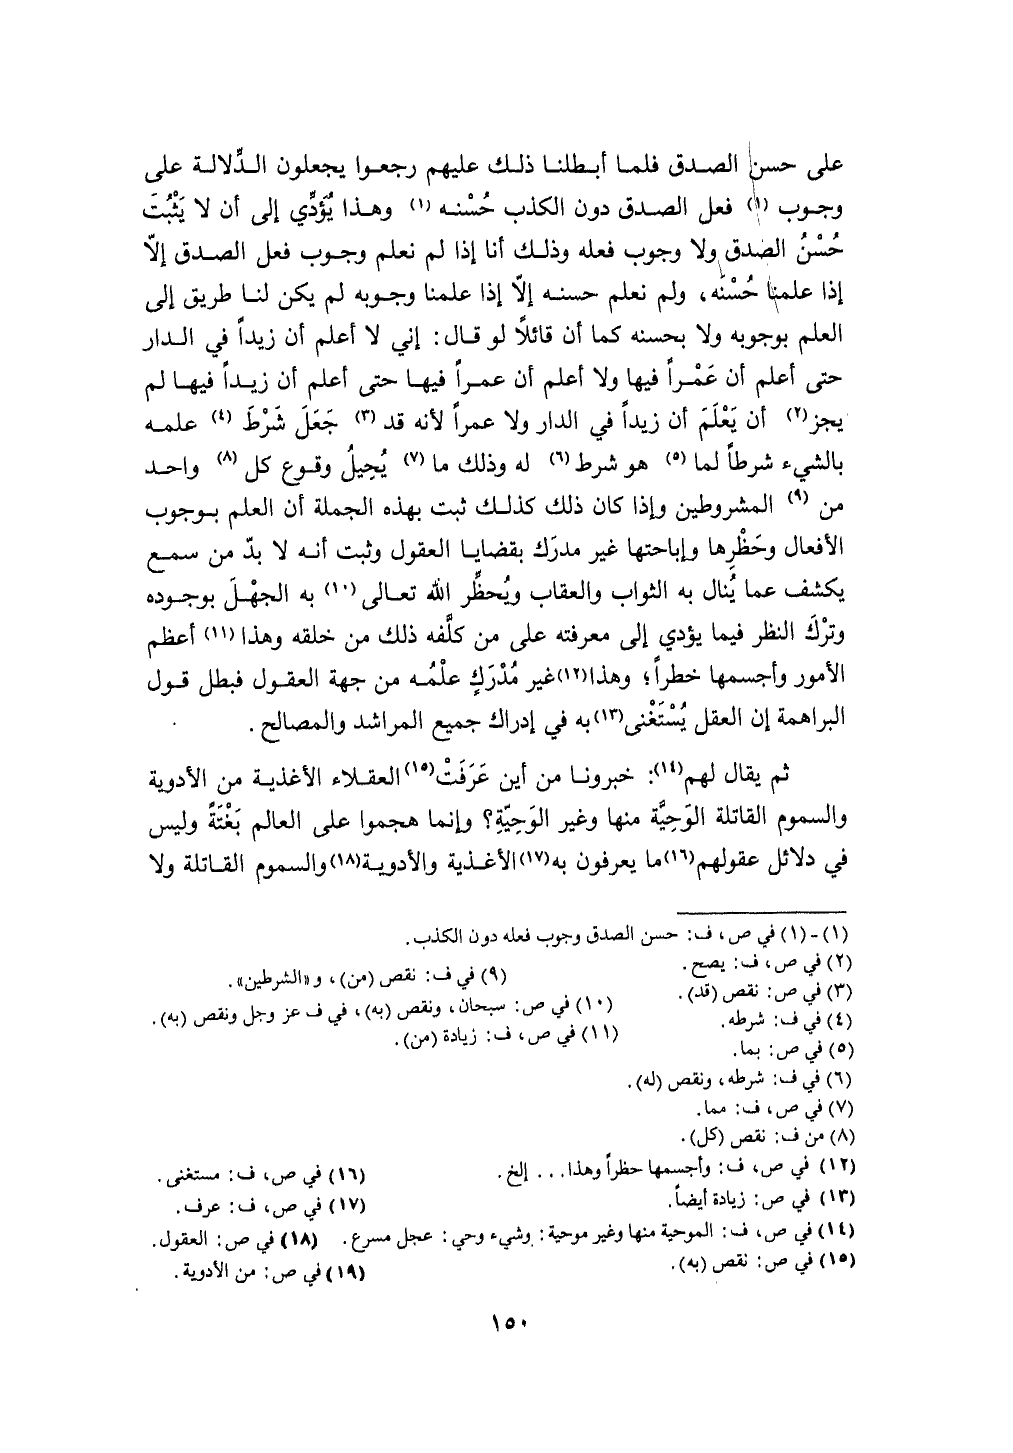 على حسن الصدق فلما أبطلنا ذلك عليهم رجعوا يجعلون الدِّلالة على
وجوب (١) فعل الصدق دون الكذب حُسْنه (١) وهذا يُؤَدِّي إلى أن لا يَثْبُتَ
حُسْنُ الصدق ولا وجوب فعله وذلك أنا إذا لم نعلم وجوب فعل الصدق إلاّ
إذا علمنا حُسْنُه، ولم نعلم حسنه إلاّ إذا علمنا وجوبه لم يكن لنا طريق إلى
العلم بوجوبه ولا بحسنه كما أن قائلاً لو قال: إني لا أعلم أن زيداً في الدار
حتى أعلم أن عَمْراً فيها ولا أعلم أن عمراً فيها حتى أعلم أن زيداً فيها لم
يجز(٢) أن يَعْلَمَ أن زيداً في الدار ولا عمراً لأنه قد (٣) جَعَلَ شَرْطَ (٤) علمه
بالشيء شرطاً لما (٥) هو شرط (٦) له وذلك ما (٧) يُحِيلُ وقوع كل (٨) واحد
من (٩) المشروطين وإذا كان ذلك كذلك ثبت بهذه الجملة أن العلم بوجوب
الأفعال وحَظْرِها وإباحتها غير مدرَك بقضايا العقول وثبت أنه لا بدّ من سمع
يكشف عما يُنال به الثواب والعقاب ويُحظِّر الله تعالى (١٠) به الجهْلَ بوجوده
وترْكَ النظر فيما يؤدي إلى معرفته على من كلَّفه ذلك من خلقه وهذا (١١) أعظم
الأمور وأجسمها خطراً؛ وهذا(١٢)غير مُدْرَكٍ علْمُه من جهة العقول فبطل قول
البراهمة إن العقل يُسْتَغْنى(١٣)به في إدراك جميع المراشد والمصالح .
ثم يقال لهم(١٤): خبرونا من أين عَرَفَتْ(١٥)العقلاء الأغذية من الأدوية
والسموم القاتلة الوَحِيَّة منها وغير الوَحِيّةِ؟ وإنما هجموا على العالم بَغْتَةً وليس
في دلائل عقولهم(١٦)ما يعرفون به(١٧)الأغذية والأدوية(١٨)والسموم القاتلة ولا
(١)-(١) في ص، ف: حسن الصدق وجوب فعله دون الكذب.
(٢) في ص، ف: يصح.
(٣) في ص: نقص (قد).
(٤) في ف: شرطه.
(٥) في ص: بما.
(٦) في ف: شرطه، ونقص (له).
(٧) في ص، ف: مما.
(٨) من ف: نقص (كل).
(٩) في ف: نقص (من)، و«الشرطين».
(١٠) في ص: سبحان، ونقص (به)، في ف عز وجل ونقص (به).
(١١) في ص، ف: زيادة (من).
(١٢) في ص، ف: وأجسمها حظراً وهذا... إلخ.
(١٣) في ص: زيادة أيضاً.
(١٤) في ص، ف: الموحية منها وغير موحية: وشيء وحي: عجل مسرع.
(١٥) في ص: نقص (به).
(١٦) في ص، ف: مستغنى.
(١٧) في ص، ف: عرف.
(١٨) في ص: العقول.
(١٩) في ص: من الأدوية.
١٥٠